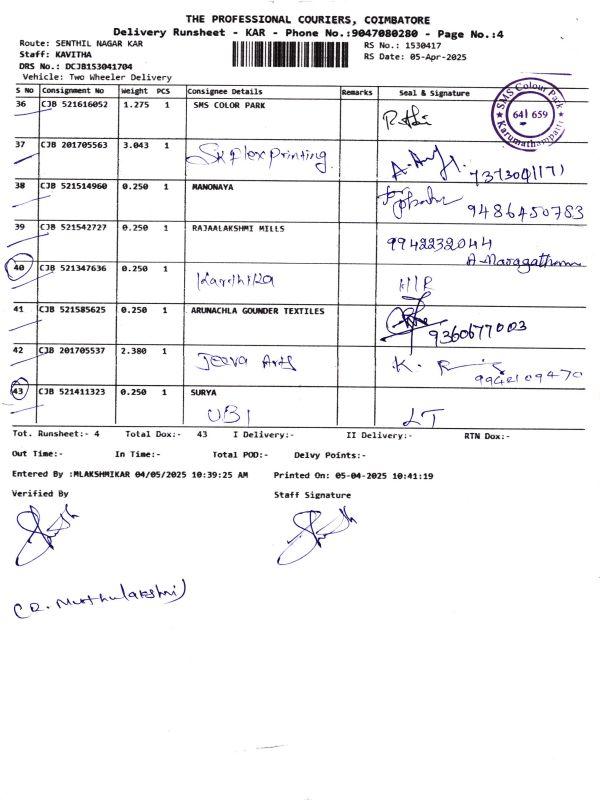 THE PROFESSIONAL COURIERS, COIMBATORE
Delivery Runsheet - KAR - Phone No.:9047080280 - Page No.:4
Route: SENTHIL NAGAR KAR
RS No.: 1530417
Staff: KAVITHA
RS Date: 05-Apr-2025
DRS No.: DCJB153041704
Vehicle: Two Wheeler Delivery
S No Consignment No Weight PCS Consignee Details Remarks Seal & Signature
36 CJB 521616052 1.275 1 SMS COLOR PARK
SMS Colour Park
641 659
Karumathampatti
37 CJB 201705563 3.043 1
SK Flex Printing
38 CJB 521514960 0.250 1 MANONAYA
9486450783
39 CJB 521542727 0.250 1 RAJAALAKSHMI MILLS
9942232044
40 CJB 521347636 0.250 1
Karthika
41 CJB 521585625 0.250 1 ARUNACHLA GOUNDER TEXTILES
9360677003
42 CJB 201705537 2.380 1
Jeeva Arts
K.
43 CJB 521411323 0.250 1 SURYA
UBI
LT
Tot. Runsheet:- 4 Total Dox:- 43 I Delivery:- II Delivery:- RTN Dox:-
Out Time:- In Time:- Total POD:- Delvy Points:-
Entered By :MLAKSHMIKAR 04/05/2025 10:39:25 AM Printed On: 05-04-2025 10:41:19
Verified By Staff Signature
(R. Muthulakshmi)